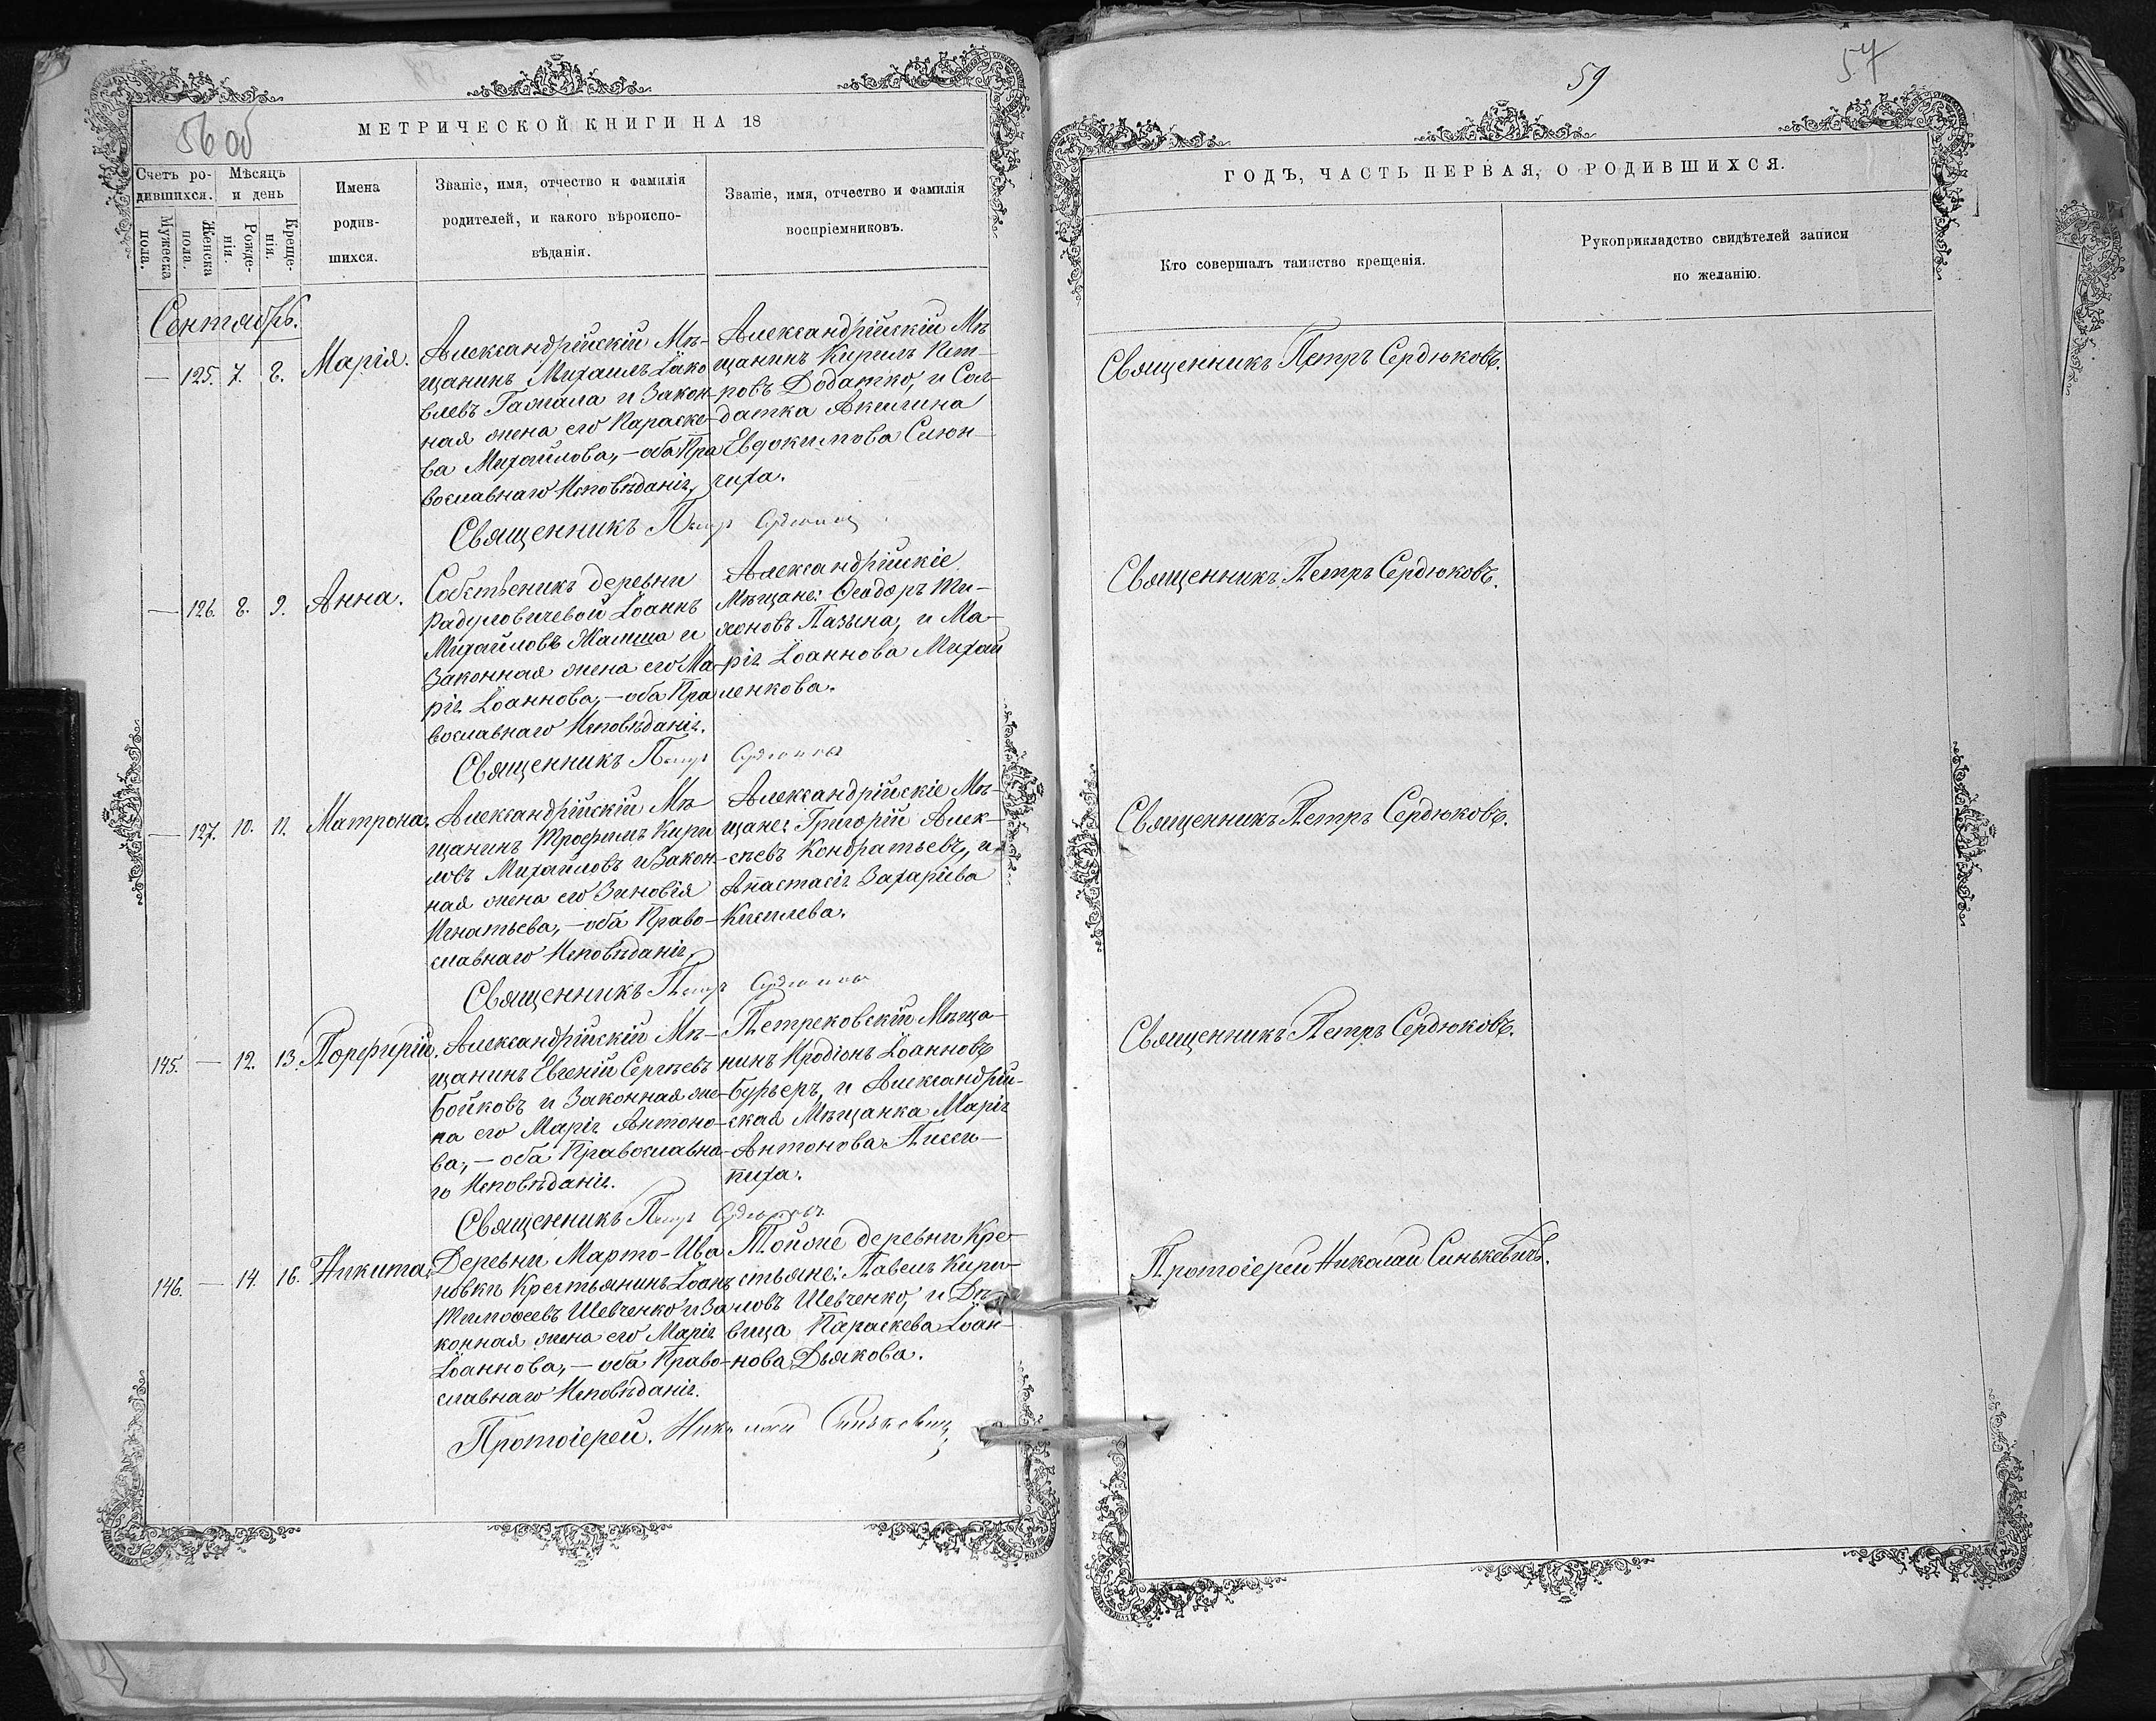 56 об
МЕТРИЧЕСКОЙ КНИГИ НА 18
Счетъ ро-
дившихся.
Мѣсяцъ
и день
Мужеска
пола.
Женска
пола.
Рожде-
нія.
Креще-
нія.
Имена
родив-
шихся.
Званіе, имя, отчество и фамилія
родителей, и какого вѣроиспо-
вѣданія.
Званіе, имя, отчество и фамилія
воспріемниковъ.
Сентябрь.
— 125. 7. 8. Марія.
Александрійскій Мѣ-
щанинъ Михаилъ Іако
влевъ Гамала и Закон-
ная жена его Параске-
ва Михайлова, — оба Пра
вославнаго Исповѣданія,
Александрійскій Мѣ
щанинъ Кирилъ Пет-
ровъ Додатко, и Сол-
датка Акилина
Евдокимова Слюн-
чиха.
Священникъ Петр
— 126. 8. 9. Анна.
Собственикъ деревни
Радуловичевой Іоаннъ
Михайловъ Жалиша и
Законная жена его Ма-
рія Іоаннова, — оба Пра
вославнаго Исповѣданія.
Александрійскіе
Мѣщане: Ѳеодоръ Ти-
моновъ Пазына, и Ма-
рія Іоаннова Михай
ленкова.
Священникъ Петр
— 127. 10. 11. Матрона.
Александрійскій Мѣ
щанинъ Трофимъ Кири
ловъ Михайловъ и Закон-
ная жена его Зиновія
Игнатьева, — оба Право-
славнаго Исповѣданія,
Александрійскіе Мѣ-
щане: Григорій Алек-
сѣевъ Кондратьевъ, и
Анастасія Захаріева
Киселева.
Священникъ Петр
145. — 12. 13. Порфирій.
Александрійскій Мѣ-
щанинъ Евгеній Сергѣевъ
Бойковъ и Законная же-
на его Марія Антоно-
ва, — оба Православна-
го Исповѣданія.
Петрековскій Мѣща-
нинъ Иродіонъ Іоанновъ
Бурьеръ, и Александрій-
ская Мѣщанка Марія
Антонова
пиха.
Священникъ Петр
146. — 14. 16. Никита.
Деревни Марто-Ива
новки Крестьянинъ Іоан
Тимоѳеевъ Шевченко и За
конная жена его Марія
Іоаннова, — оба Право-
славнаго Исповѣданія.
Тойоже деревни Кре-
стьяне: Павелъ Кири-
ловъ Шевченко, и Дѣ-
вица Параскева Іоан-
нова Дьякова.
Протоіерей. Николай Синькевич
59
57
ГОДЪ, ЧАСТЬ ПЕРВАЯ, О РОДИВШИХСЯ.
Кто совершалъ таинство крещенія.
Рукоприкладство свидѣтелей записи
по желанію.
Священникъ Петръ Сердюковъ.
Священникъ Петръ Сердюковъ.
Священникъ Петръ Сердюковъ.
Священникъ Петръ Сердюковъ.
Протоіерей Николай Синькевичъ.